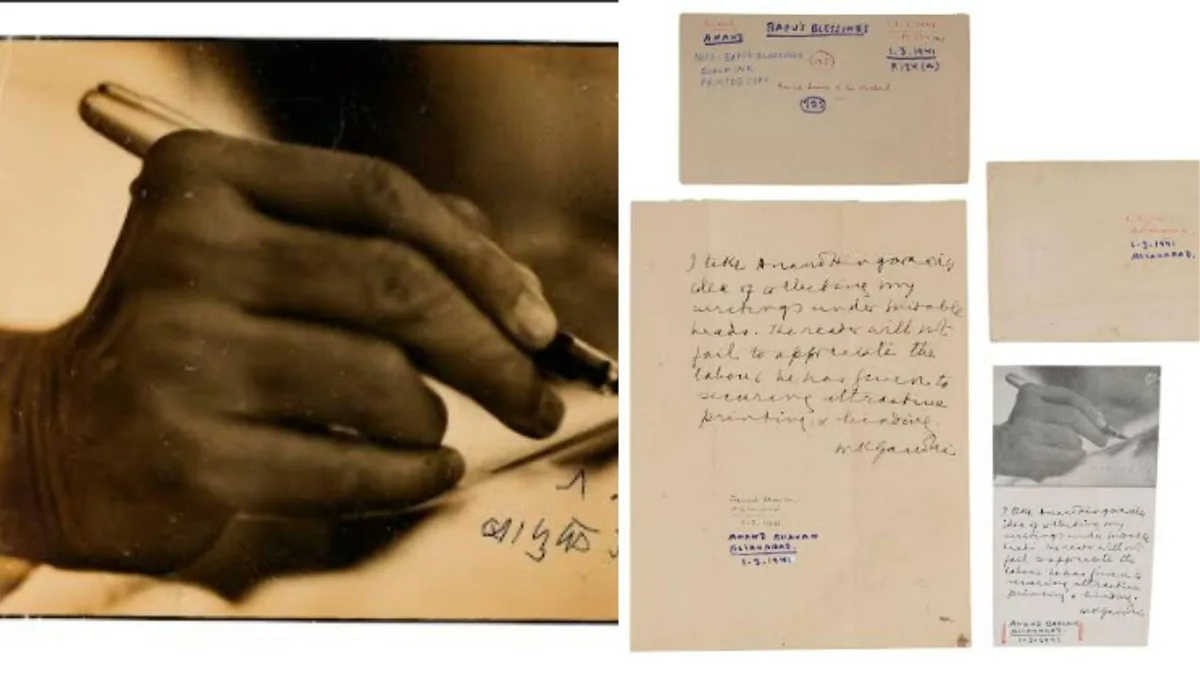 ANAND
BAPU'S BLESSINGS
1.3.1941
P.124 (A)
NOTE: BAPU'S BLESSINGS
BLOCK
PRINTED COPY
1-3-1941
ALLAHABAD.
I like Anand Hingorani's
idea of collecting my
writings under suitable
heads. The reader will not
fail to appreciate the
labour he has given to
securing attractive
printing & binding.
MKGandhi
Anand Bhavan
Allahabad
1-3-1941
ANAND BHAVAN
ALLAHABAD.
1-3-1941
I like Anand Hingorani's
idea of collecting my
writings under suitable
heads. The reader will not
fail to appreciate the
labour he has given to
securing attractive
printing & binding.
MKGandhi
ANAND BHAVAN
ALLAHABAD.
1-3-1941